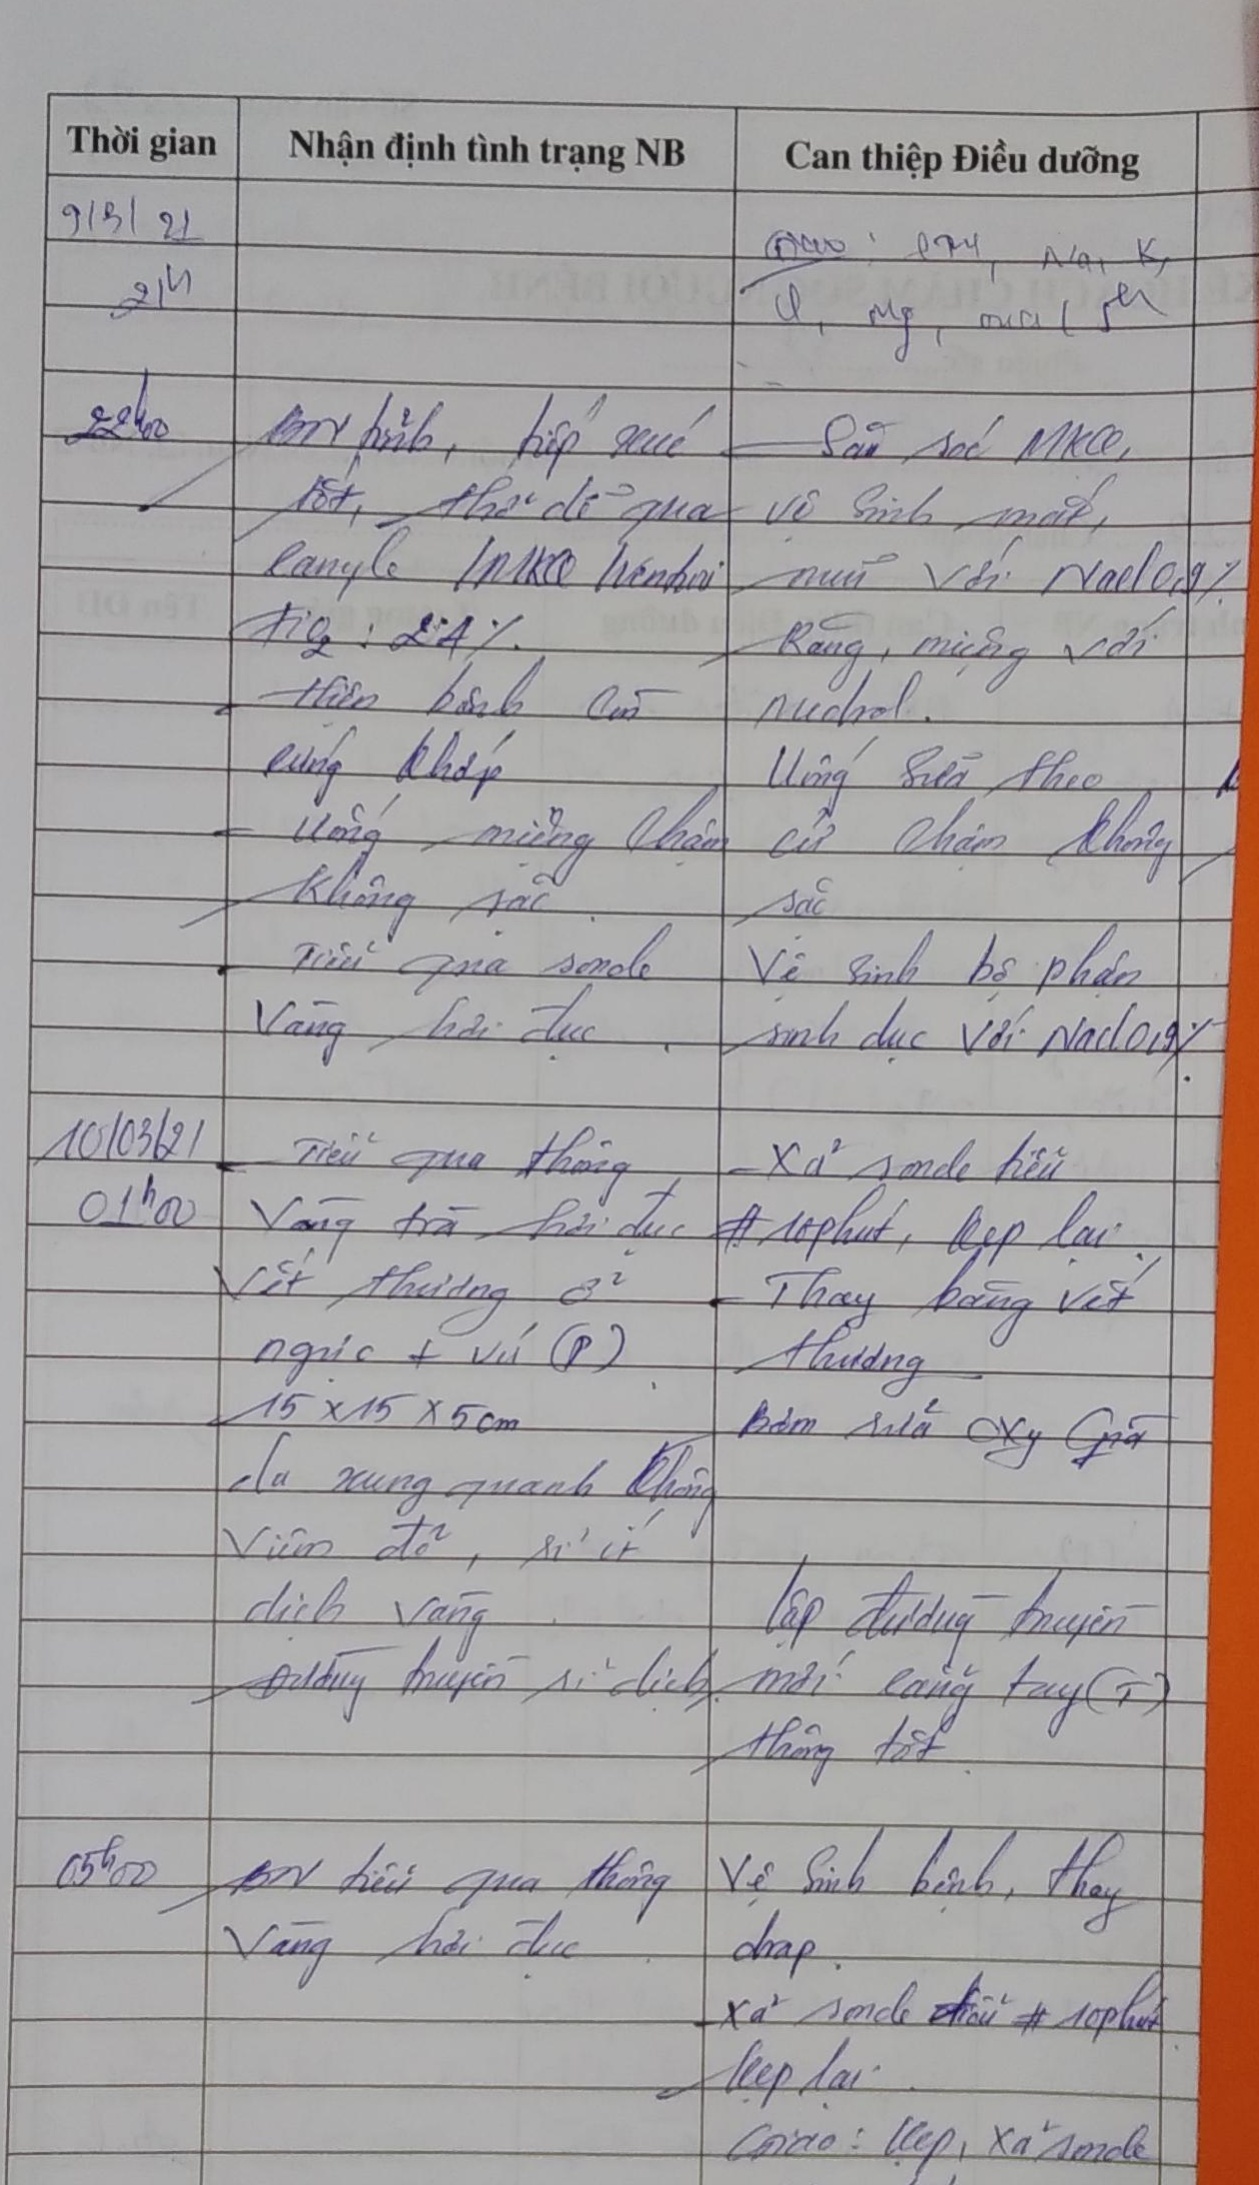 Thời gian
Nhận định tình trạng NB
Can thiệp Điều dưỡng
9/3/21
21h
Giao: CTM, Na, K,
Cl, Mg,
22h00
BN tỉnh, tiếp xúc
tốt, thở dễ qua
canyle /MKQ
FiO2: 24%.
Hiện bệnh còn
cứng khớp
- Uống miệng chậm
không sặc.
- Tiểu qua sonde
Vàng hơi đục.
- Săn sóc MKQ,
vệ sinh mắt,
mũi với NaCl 0,9%
Răng, miệng với
Uống sữa theo
cử chậm không
sặc
Vệ sinh bộ phận
sinh dục với NaCl 0,9%.
10/03/21
01h00
- Tiểu qua thông
Vàng trà hơi đục
Vết thương ở
ngực + vú (P)
15 x 15 x 5cm
da xung quanh không
viêm đỏ, rỉ ít
dịch vàng.
Đường truyền rỉ dịch.
- Xả sonde tiểu
# 10phút, kẹp lại.
- Thay băng vết
thương
Bơm rửa oxy Già
lập đường truyền
mới cẳng tay (T)
thông tốt.
05h00
BN tiểu qua thông
Vàng hơi đục.
Vệ sinh bệnh, thay
drap.
- Xả sonde tiểu # 10phút
kẹp lại.
Giao: kẹp, xả sonde